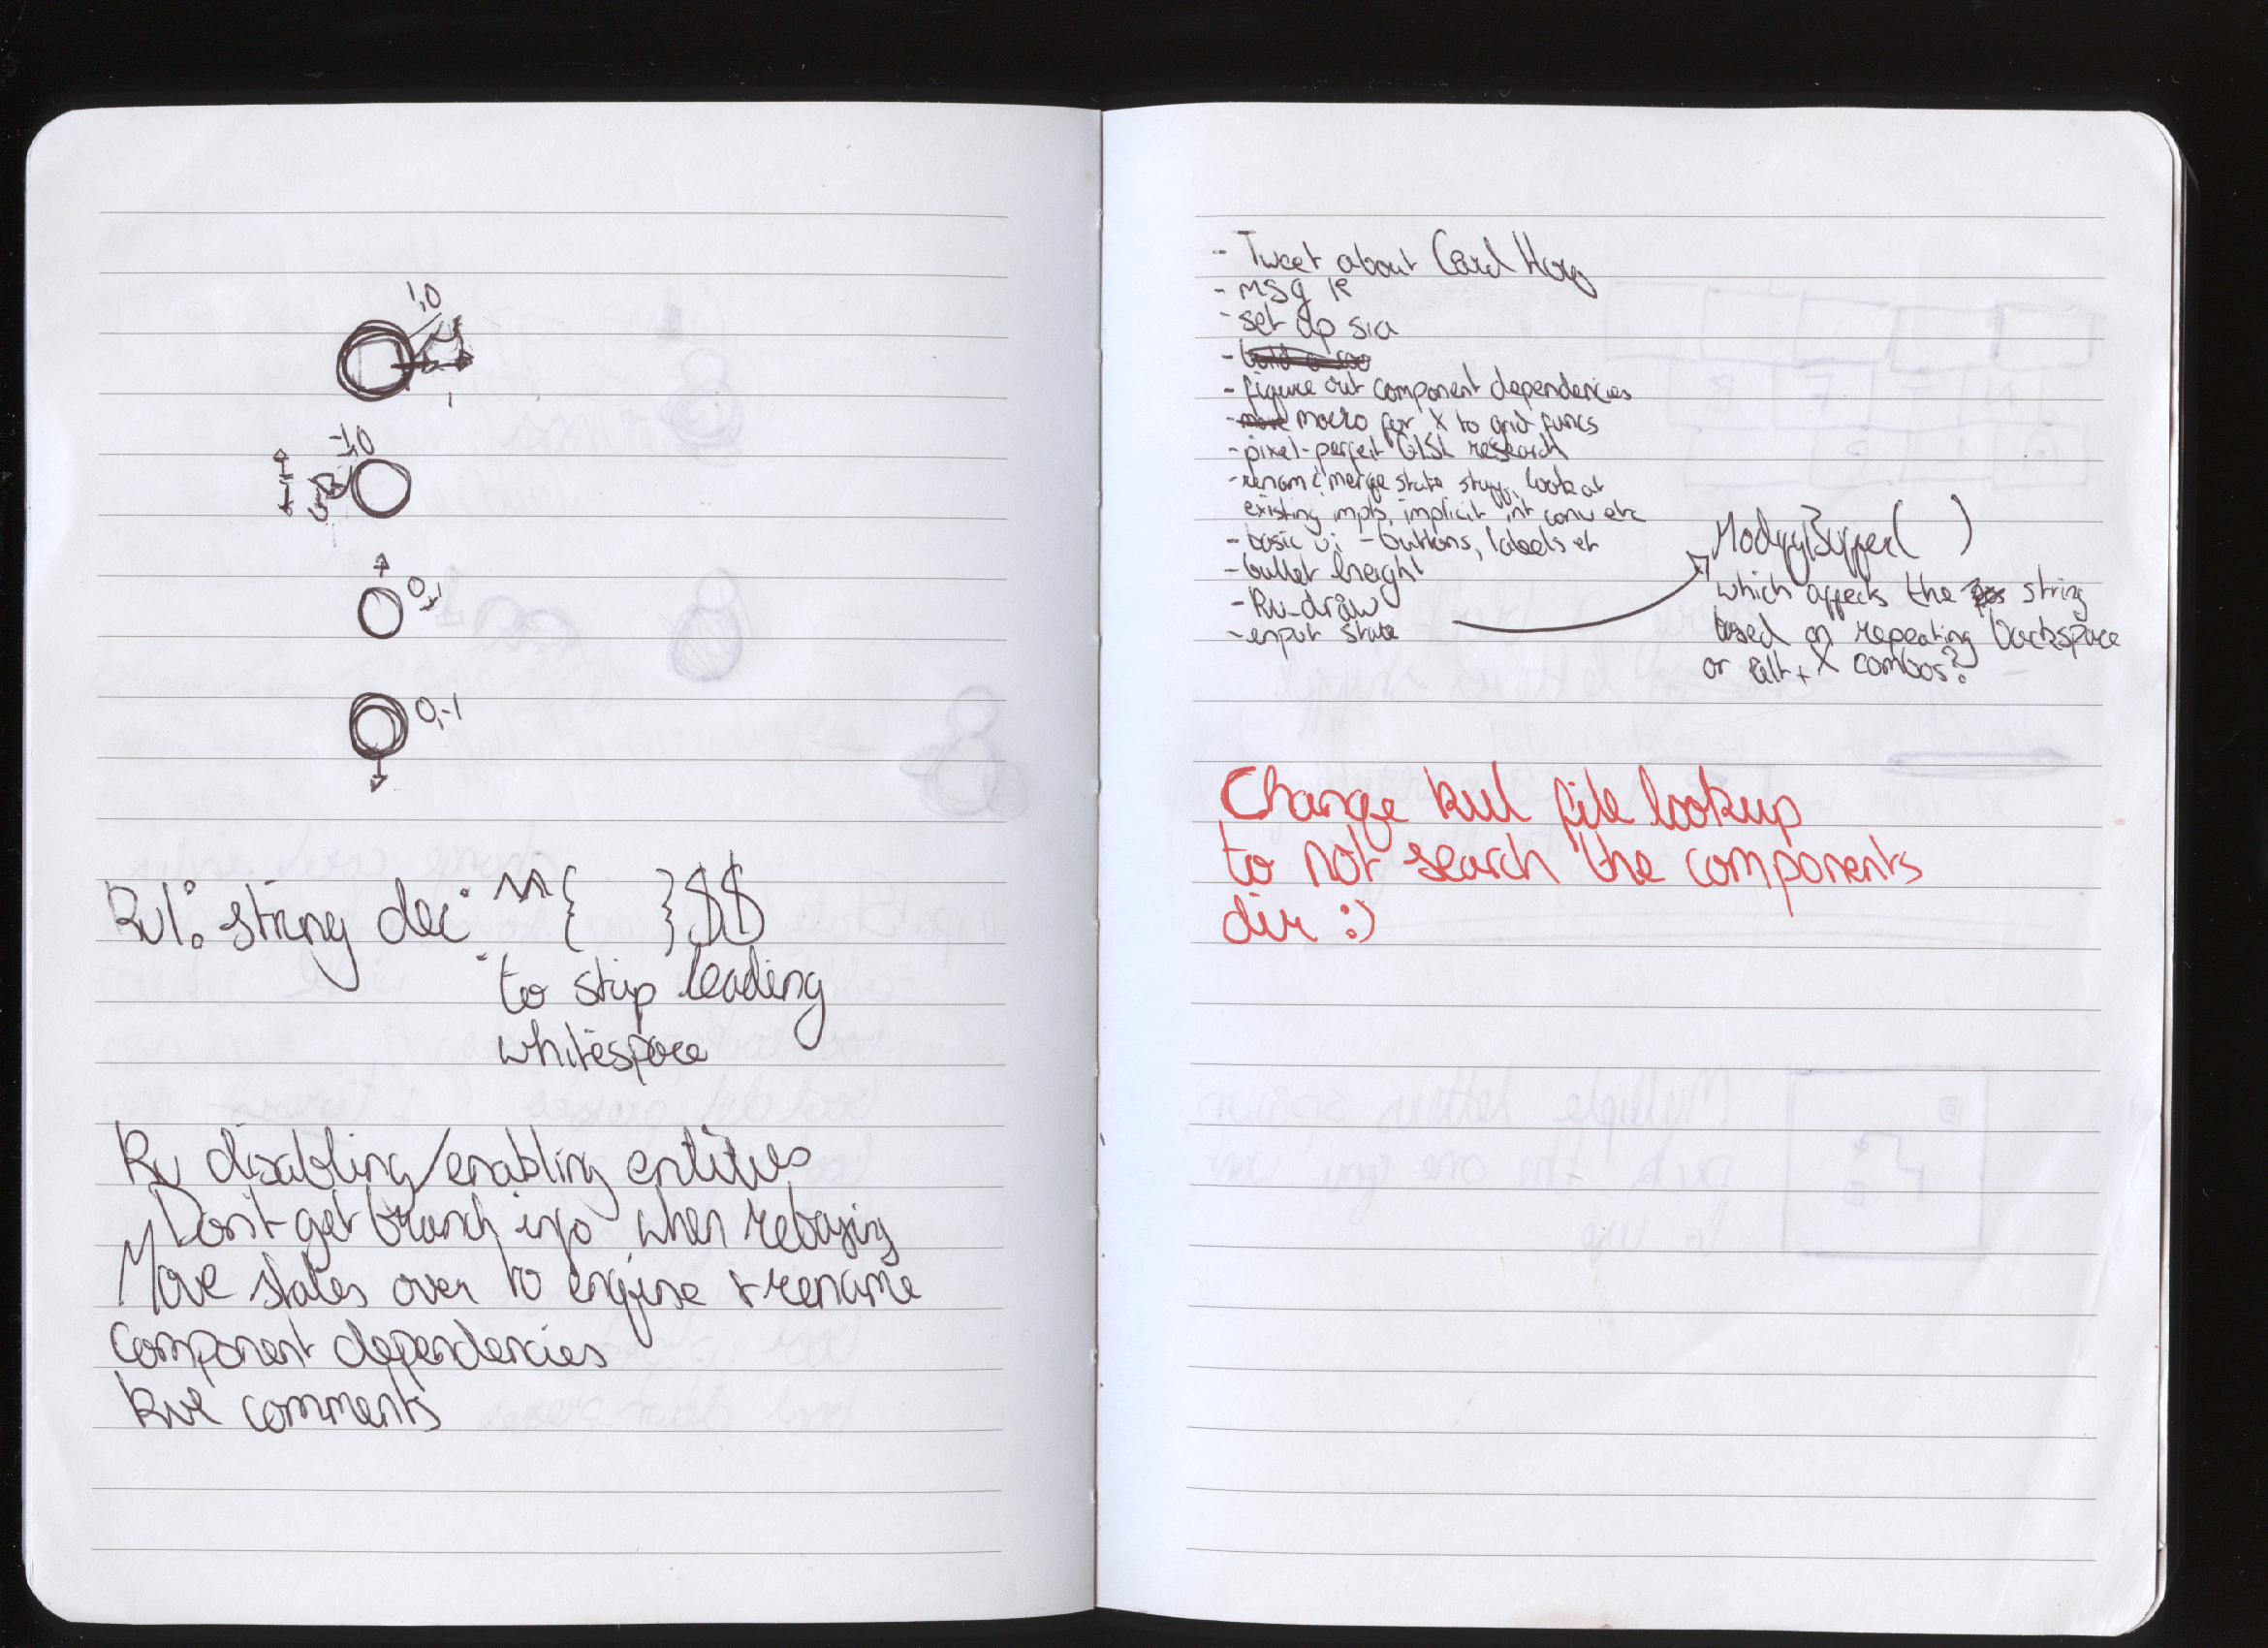 1,0
1
-1,0
0,1
0,-1
Kul: string dec: ^^{ }$$
to skip leading
whitespace
Ku disabling/enabling entities
Don't get branch info when rebasing
Move states over to engine & rename
Component dependencies
kul comments
- Tweet about Card Hog
- msg
- set up
-
- figure out component dependencies
- macro for X to grid funcs
- pixel-perfect GLSL research
- renam & merge state stuff, look at
existing impls, implicit int conv etc
- basic ui - buttons, labels et
- bullet height
- Ku_draw
- input state
ModifyBuffer( )
which affects the string
based on repeating backspace
or alt+X combos?
Change kul file lookup
to not search the components
dir :)